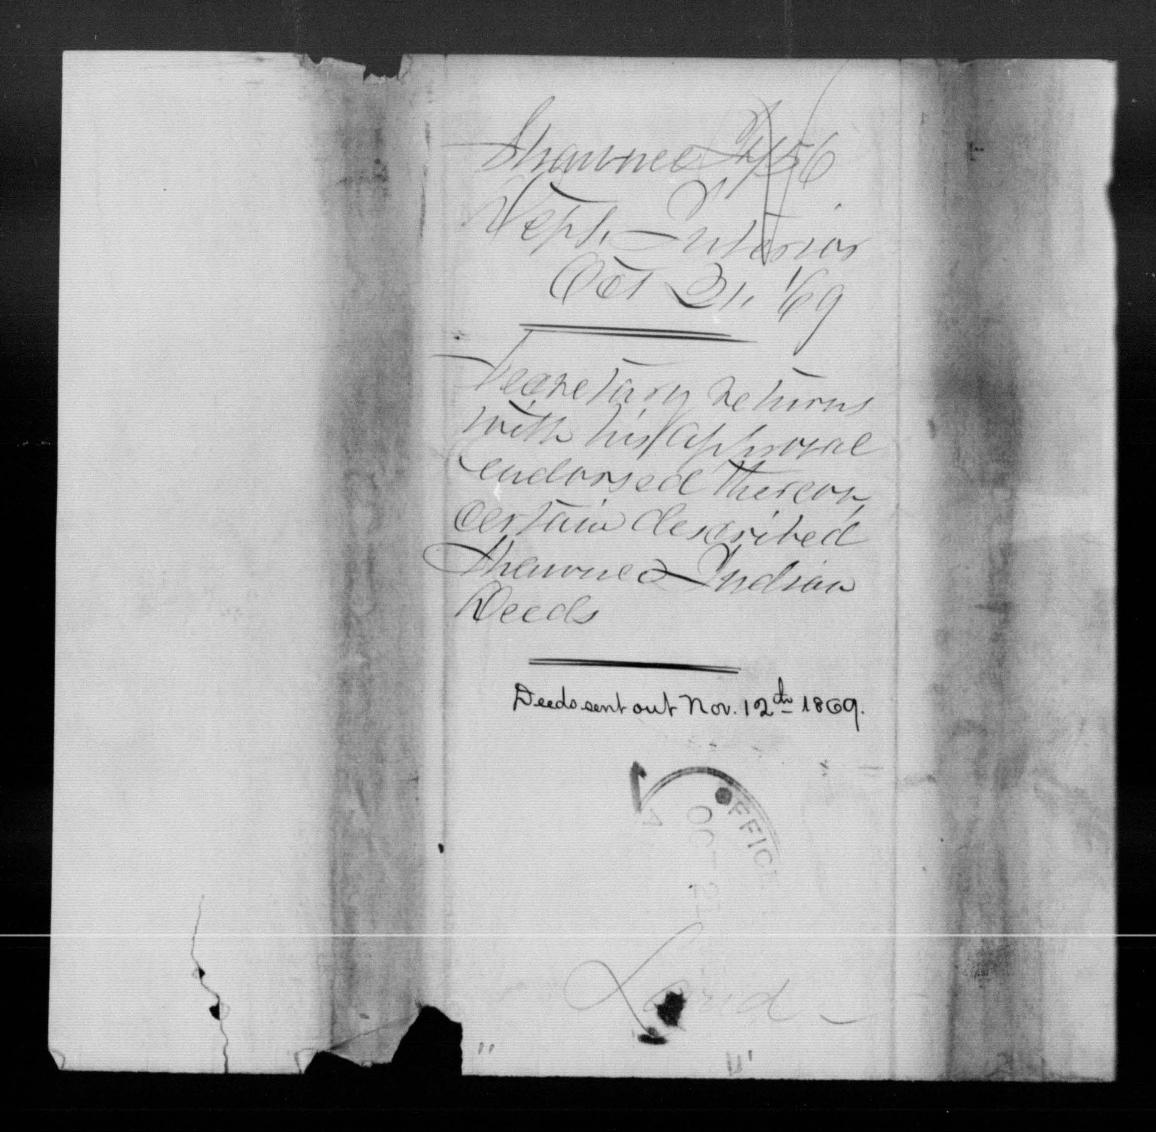 Shawnee
Dept. Interior
Oct 21, '69
Secretary returns
with his approval
endorsed thereon,
certain described
Shawnee Indian
Deeds
Deeds sent out Nov. 12th 1869.
OFFIC
OCT 21